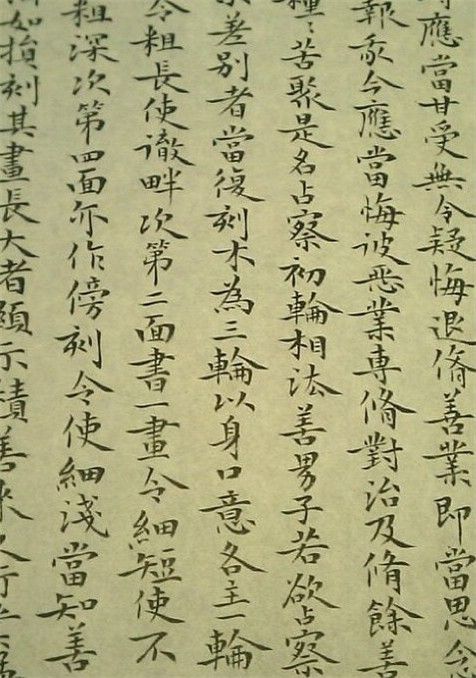 應當甘受無令疑悔退脩善業即當思念
報我今應當悔彼惡業專脩對治及脩餘善
種種苦聚是名占察初輪相法善男子若欲占察
差別者當復刻木為三輪以身口意各主一輪
令粗長使徹畔次第二面書一畫令細短使不
粗深次第四面亦作傍刻令使細淺當知善
如損刻其畫長大者顯示積善來久行